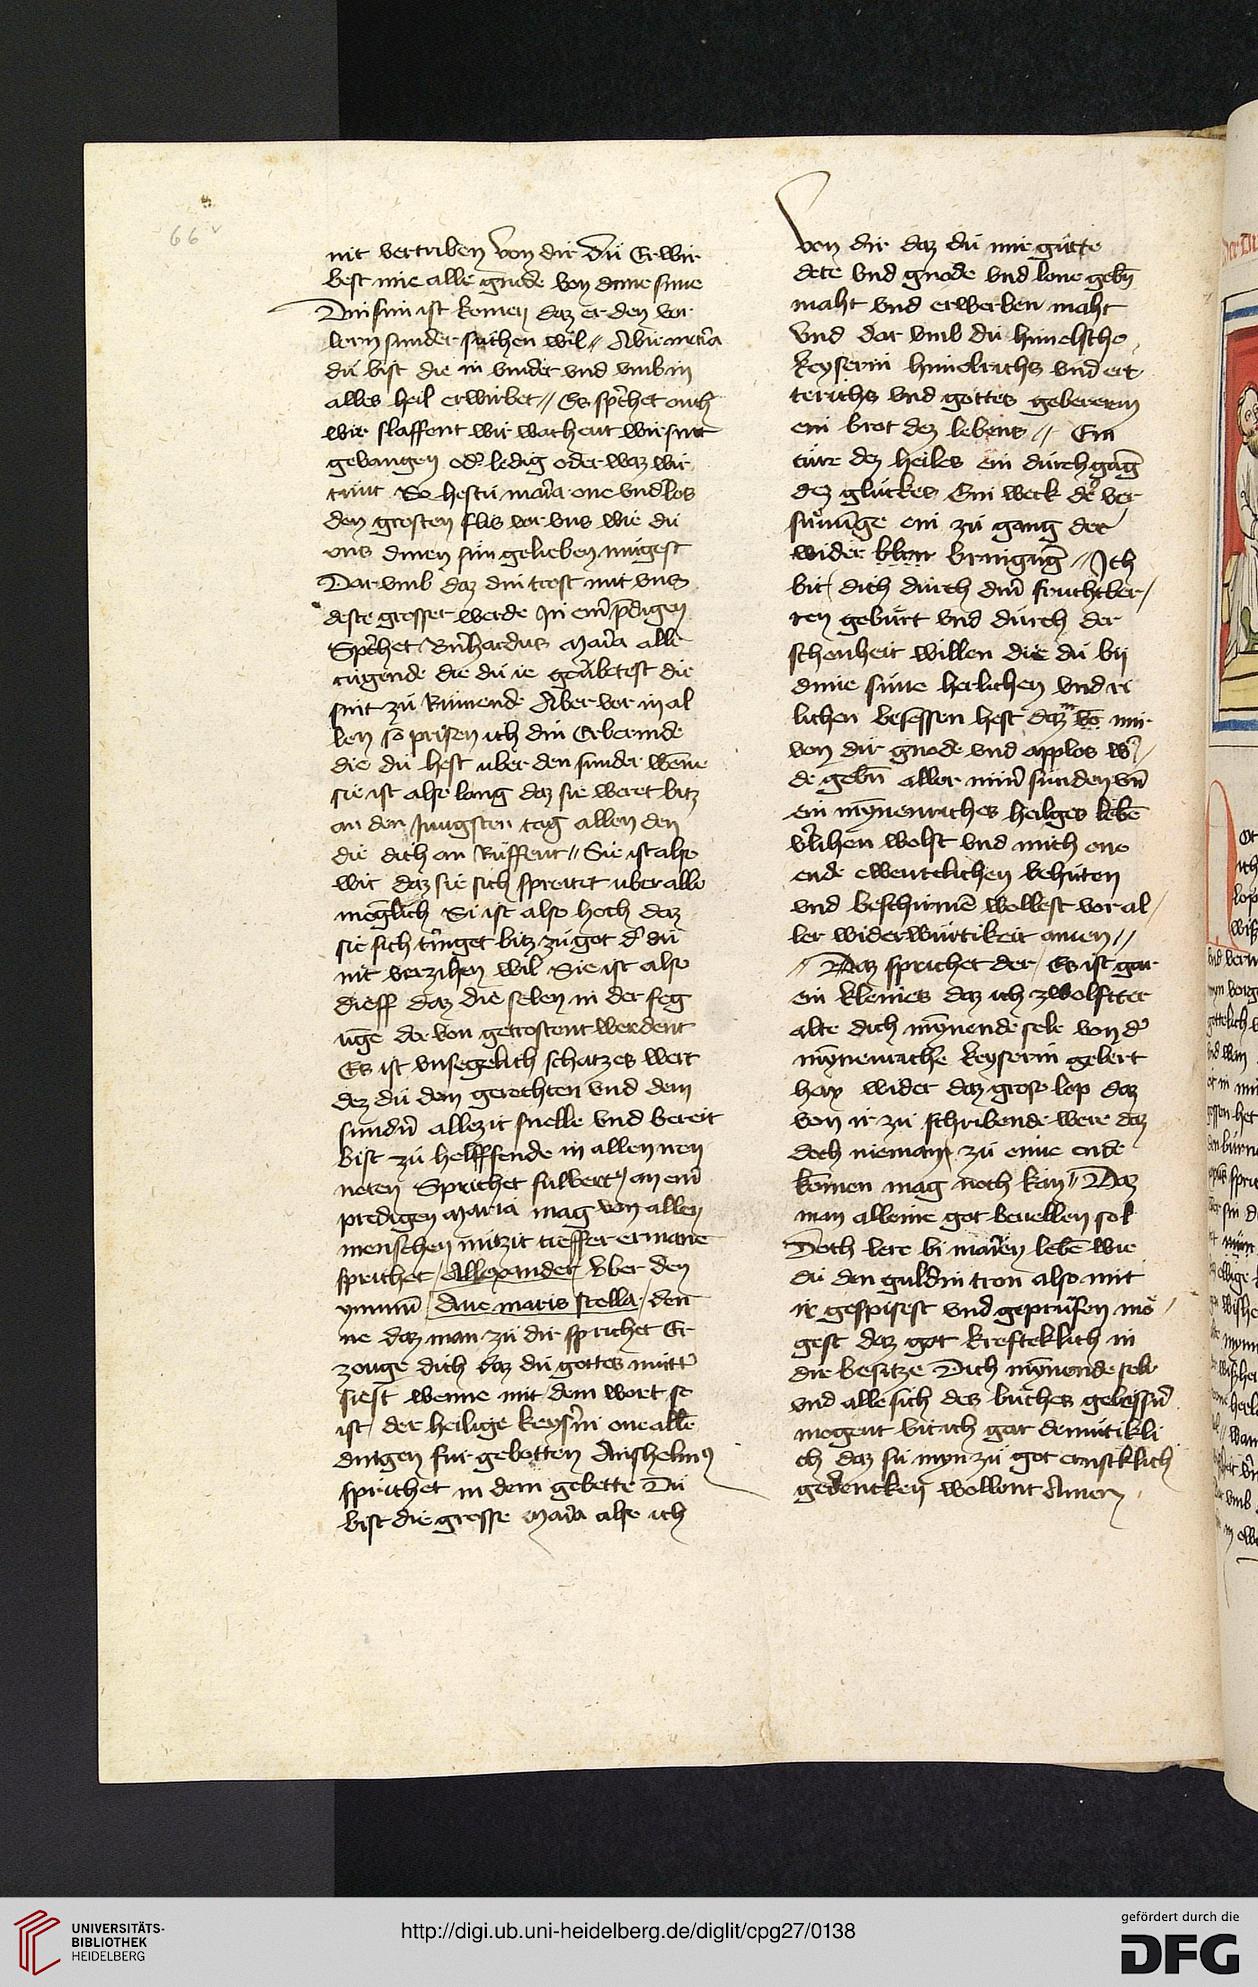 66 v
nit vertriben von dir Dü Erwir
best mie alle gnode von dime süne
Din sün ist komen daz er den vor
lorn sunder suchen wil // Abir maria
dü bist die in vindet vnd vmb in
alles heil erwirbet // Es sp̄chet ouch
wir slaffent wir wachent wir sint
gevangen od̓ ledig oder waz wir
tünt So hestu mar̓a one vndlos
den grosten flis vor vns wie dü
vns dinen sün gelieben mügest
Dar vmb daz din trost mit vns
deste grosser werde In ein̓ p̄digen
Sp̄chet Bn̓hardus Mar̓a alle
tugende die dü ie geübetest die
sint zü Rümende Aber vor in al
len so prisen ich din Erbermde
die dü hest uber den sünder wēne
sie ist also lang daz sie weret bitz
an den Jungsten tag allen den
die dich an Rüffent // Sie ist also
wit daz sie sich spreitet uber alle
mēglich Si ist also hoch daz
sie sich tr̓nget bitz zü got d̓ dü
nit verzihen wil Sie ist also
dieff daz die selen in der feg
üge do von getrostent werdent
Es ist vnsegelich schatzes wert
dez dü dem gerechten vnd dem
sundr̓ allezit snelle vnd bereit
bist zü helffende in allen iren
noten Sprichet fulbert⁹ an ein̓
predigen Maria mag von allen
menschen nützit tieffer ermane
sprichet Allexander vber den
ymnū Aue maris stella den
ne daz man zü dir sprichet Er
zouge dich daz dü gottes mütt̓
siest wenne mit dem wort se
ist der heilige keys̓in one alle
dingen fur gebotten Anshelm⁹
sprichet in dem gebette Dü
bist die grosse Mar̓a also ich
von dir daz dü mir gütte
dete vnd gnode vnd lone gebn̄
maht vnd erwerben maht
Vnd dar vmb dü himelsche
keyserin himelrichs vnd ert
terichs vnd gottes gebererin
ein brot dez lebens // Ein
türe dez heiles ein durchgāg
dez glückes Ein weck der ver
sünūnge ein zü gang der
wider bringūg // Ich
bit dich durch din̄ fruchtber
ren gebürt vnd durch der
schonheit willen die dü by
dime süne herlichen vnd ri
lichen besessen hest daz vō mir
von dir gnode vnd applos w̓
de gebn̄ aller min̓ sünden vn̄
ein mȳnenriches heilges lebē
v̓lihen wolst vnd mich one
ende eweneclichen behüten
vnd beschirmē wollest vor al
ler widerwürtikeit amen //
// Daz sprichet der Es ist gar
ein kleines daz ich zwolfter
alte dich mȳnende sele von d̓
mȳnenriche keyserin gelert
han wider daz gros lop daz
von ir zü schribende were daz
doch nieman zü eime ende
kōmen mag noch kan // Daz
man alleine got beuellen sol
Doch lere bi mar̓en lebē wie
dü den guldin tron also mit
ir gespisest vnd geprüfen mö
gest daz got krefteklich in
die besitze Dich mȳnende sele
vnd alle sich des büches gebessr̓n
mogent bit ich gar demütikli
ch daz sü myn zü got ernstklich
gedencken wollent Amen
UNIVERSITÄTS-
BIBLIOTHEK
HEIDELBERG
http://digi.ub.uni-heidelberg.de/diglit/cpg27/0138
gefördert durch die
DFG